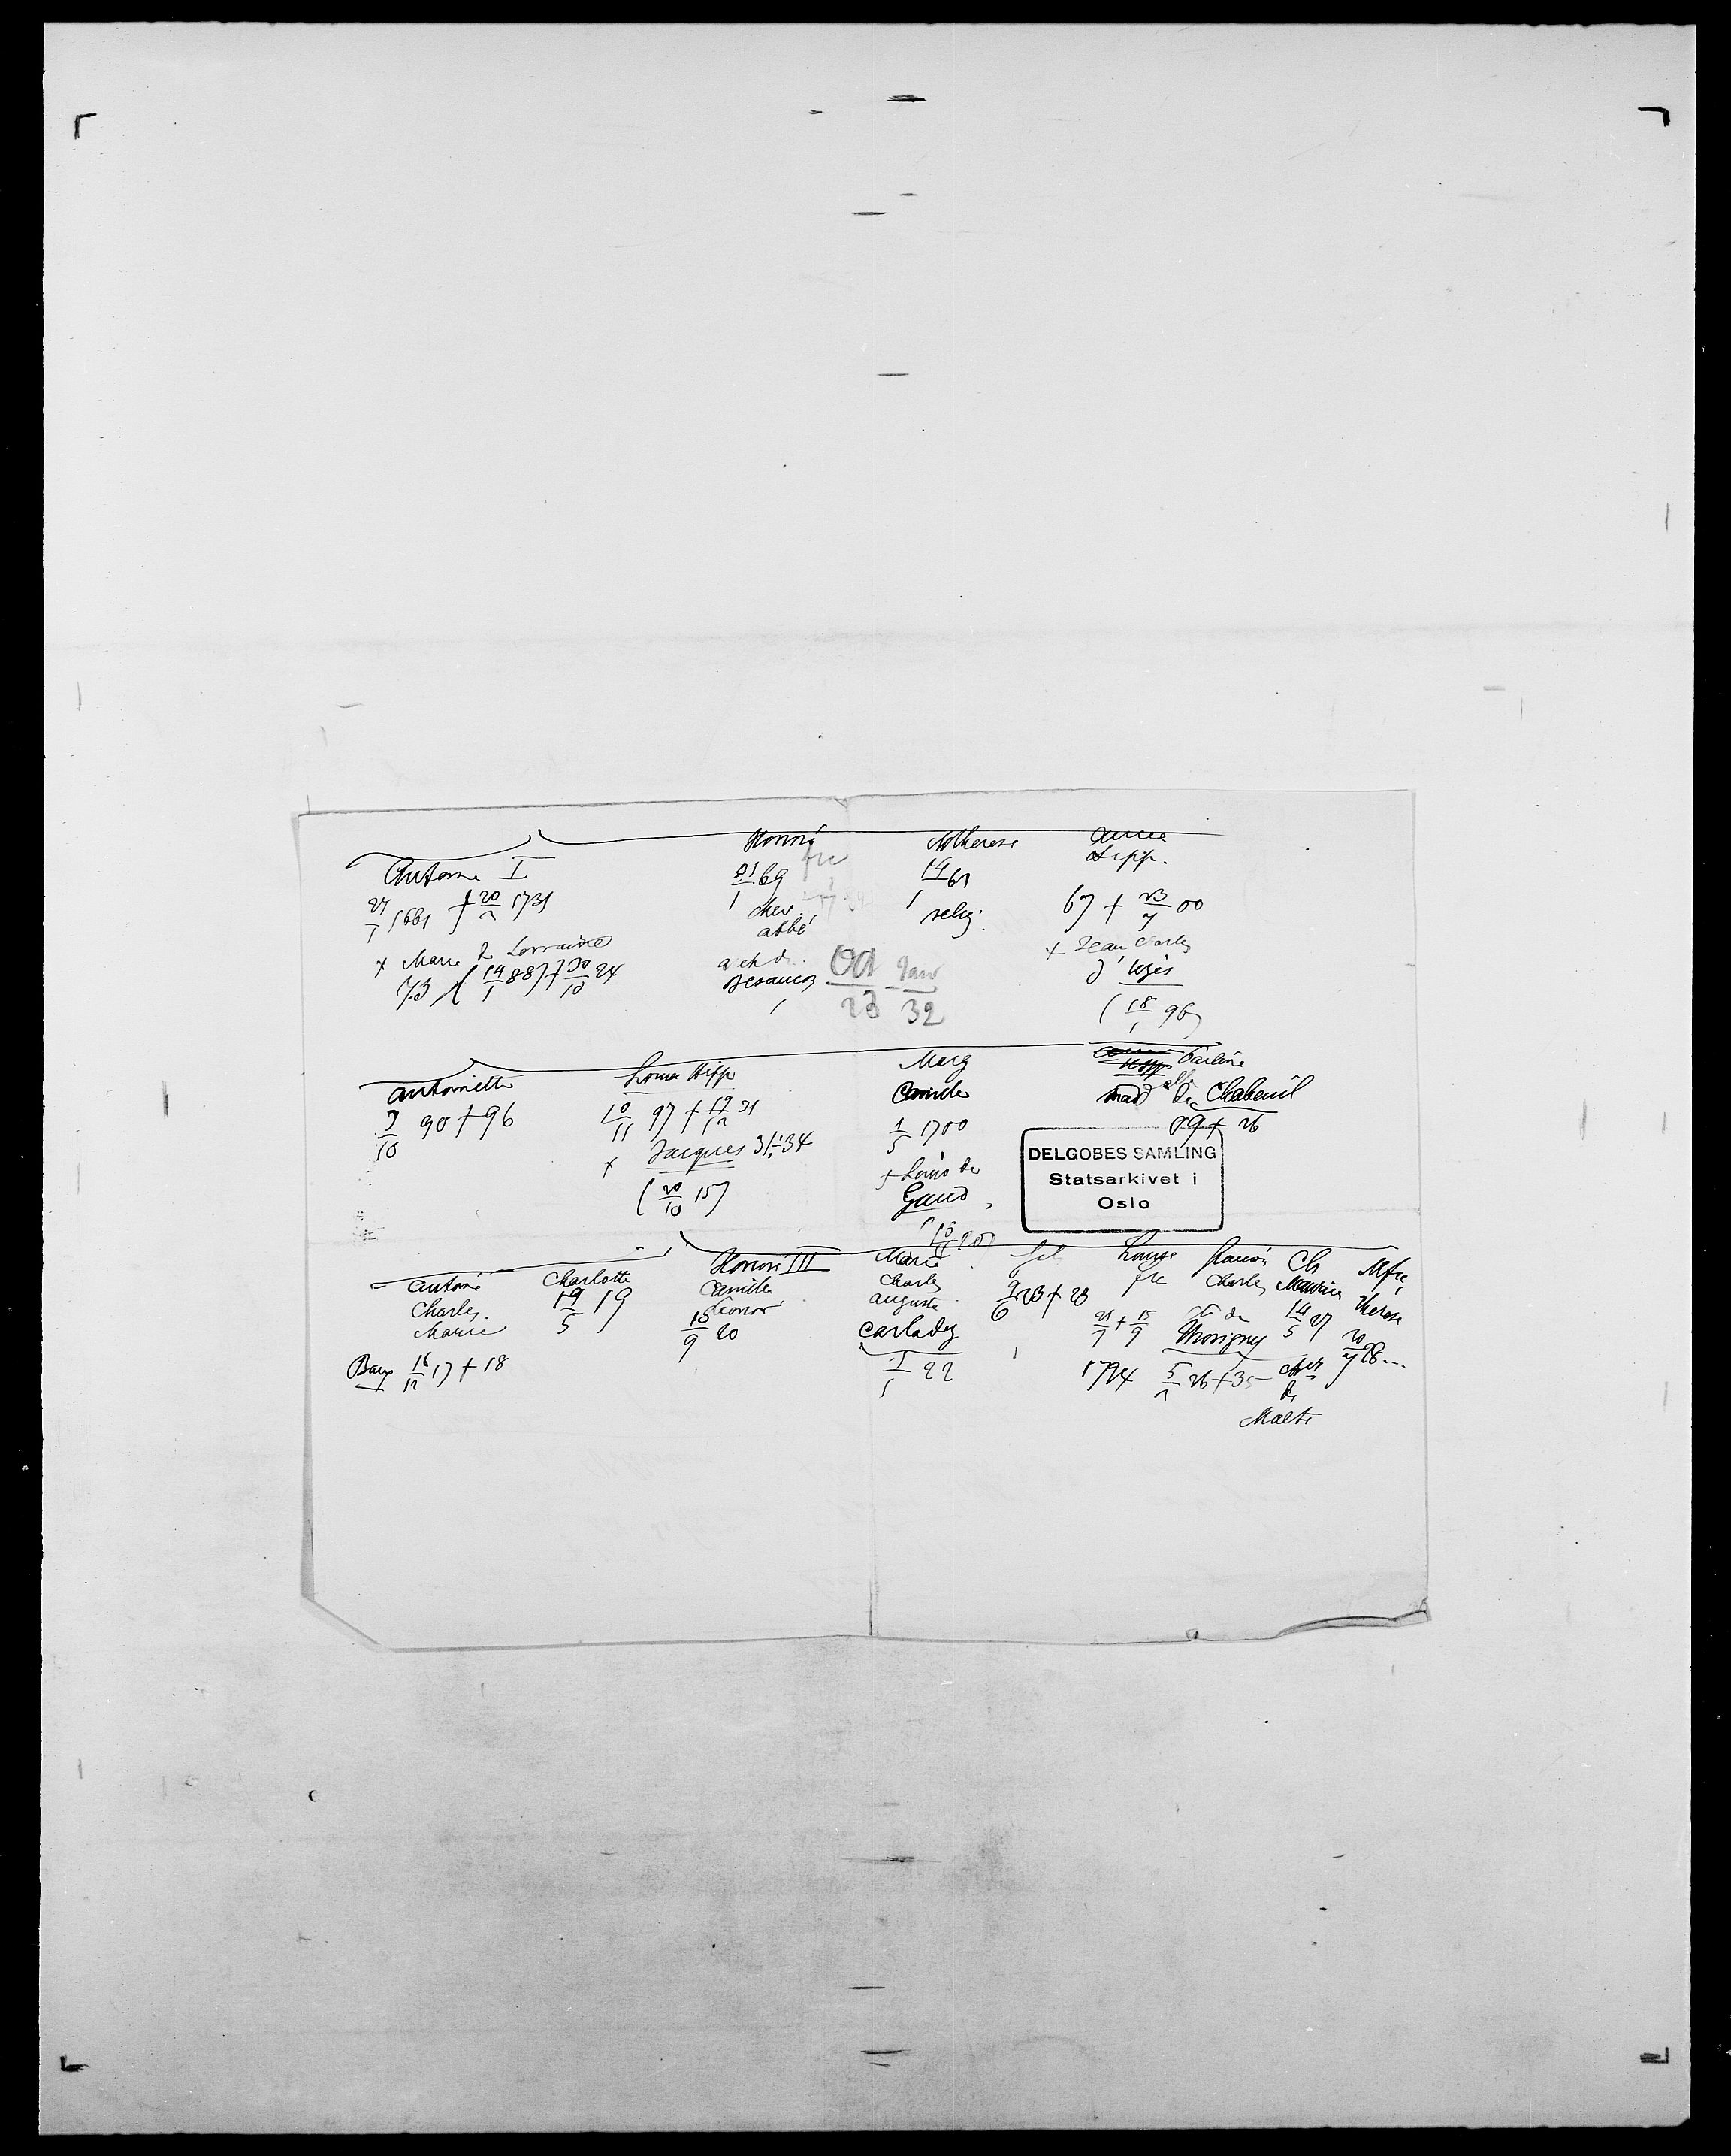 Antoine I
27/1 1661 + 20/2 1731
x Marie de Lorraine
73 (14/1 88) + 30/10 24
Honoré
fre
21/1 69
chev.
abbé
arch de
Besancon
Od Janv
23 32
M Therese
14/1 61
relig.
Anne
Hipp.
67 + 23/7 00
x Jean Charles
d'Uzès
(18/1 96)
Antoinette
3/10 90 + 96
Louise Hipp
10/11 97 + 29/12 31
x Jacques 31-34
(20/10 15)
Marg
Camille
1/5 1700
x Louis de
Gand
Hipp Pauline
mad alle de Chabeuil
09 + 26
DELGOBES SAMLING
Statsarkivet i
Oslo
Antoine
Charles
Marie
Baux 16/12 17 + 18
Charlotte
19/5 19
Honoré III
Camille
Leonor
10/9 20
Marie
Charles
Auguste
Carladez
1/1 22
9/6 23 + 23
Louise
fre
21/7 + 15/9
1724
Francois
Charles
ct de
Thorigny
5/2 26 + 35
Ch
Maurice
14/5 27
chev
de
Malte
M fre
Therese
20/7 28...